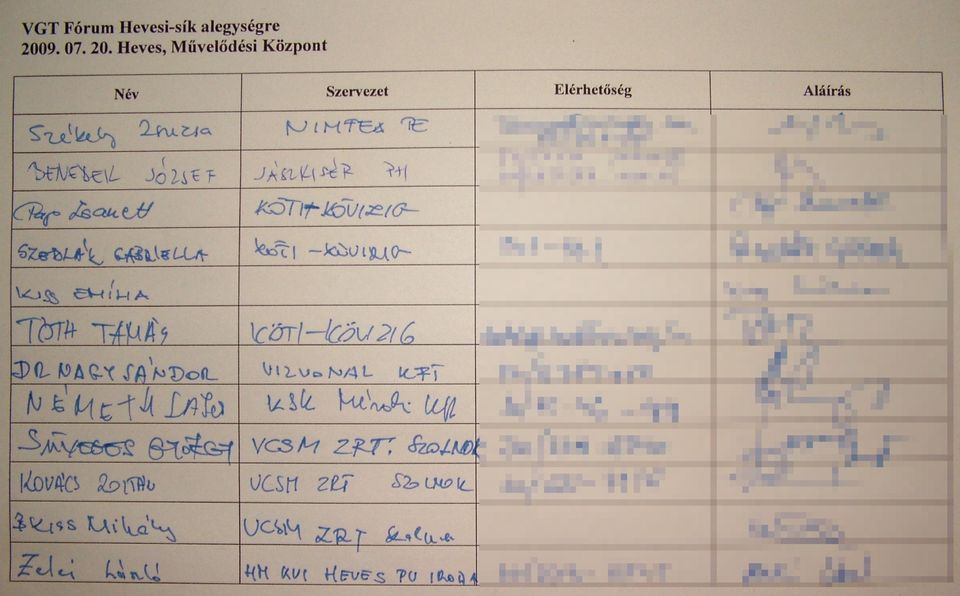 VGT Fórum Hevesi-sík alegységre
2009. 07. 20. Heves, Művelődési Központ
Név Szervezet Elérhetőség Aláírás
Székely Zsuzsa NIMFEA TE
BENEDEK JÓZSEF JÁSZKISÉR PH
Papp Zsanett KÖTI-KÖVIZIG
SZEDLÁK GABRIELLA KÖTI-KÖVIZIG
KISS EMÍLIA
TÓTH TAMÁS KÖTI-KÖVIZIG
DR NAGY SÁNDOR VIZVONAL KFT
NÉMETH LAJOS KSK Mérnöki Kft
GYÖRGY VCSM ZRT. SZOLNOK
KOVÁCS ZOLTÁN VCSM ZRT SZOLNOK
Kiss Mihály VCSM ZRT Szolnok
Zelei László HM KVI HEVES PU IRODA